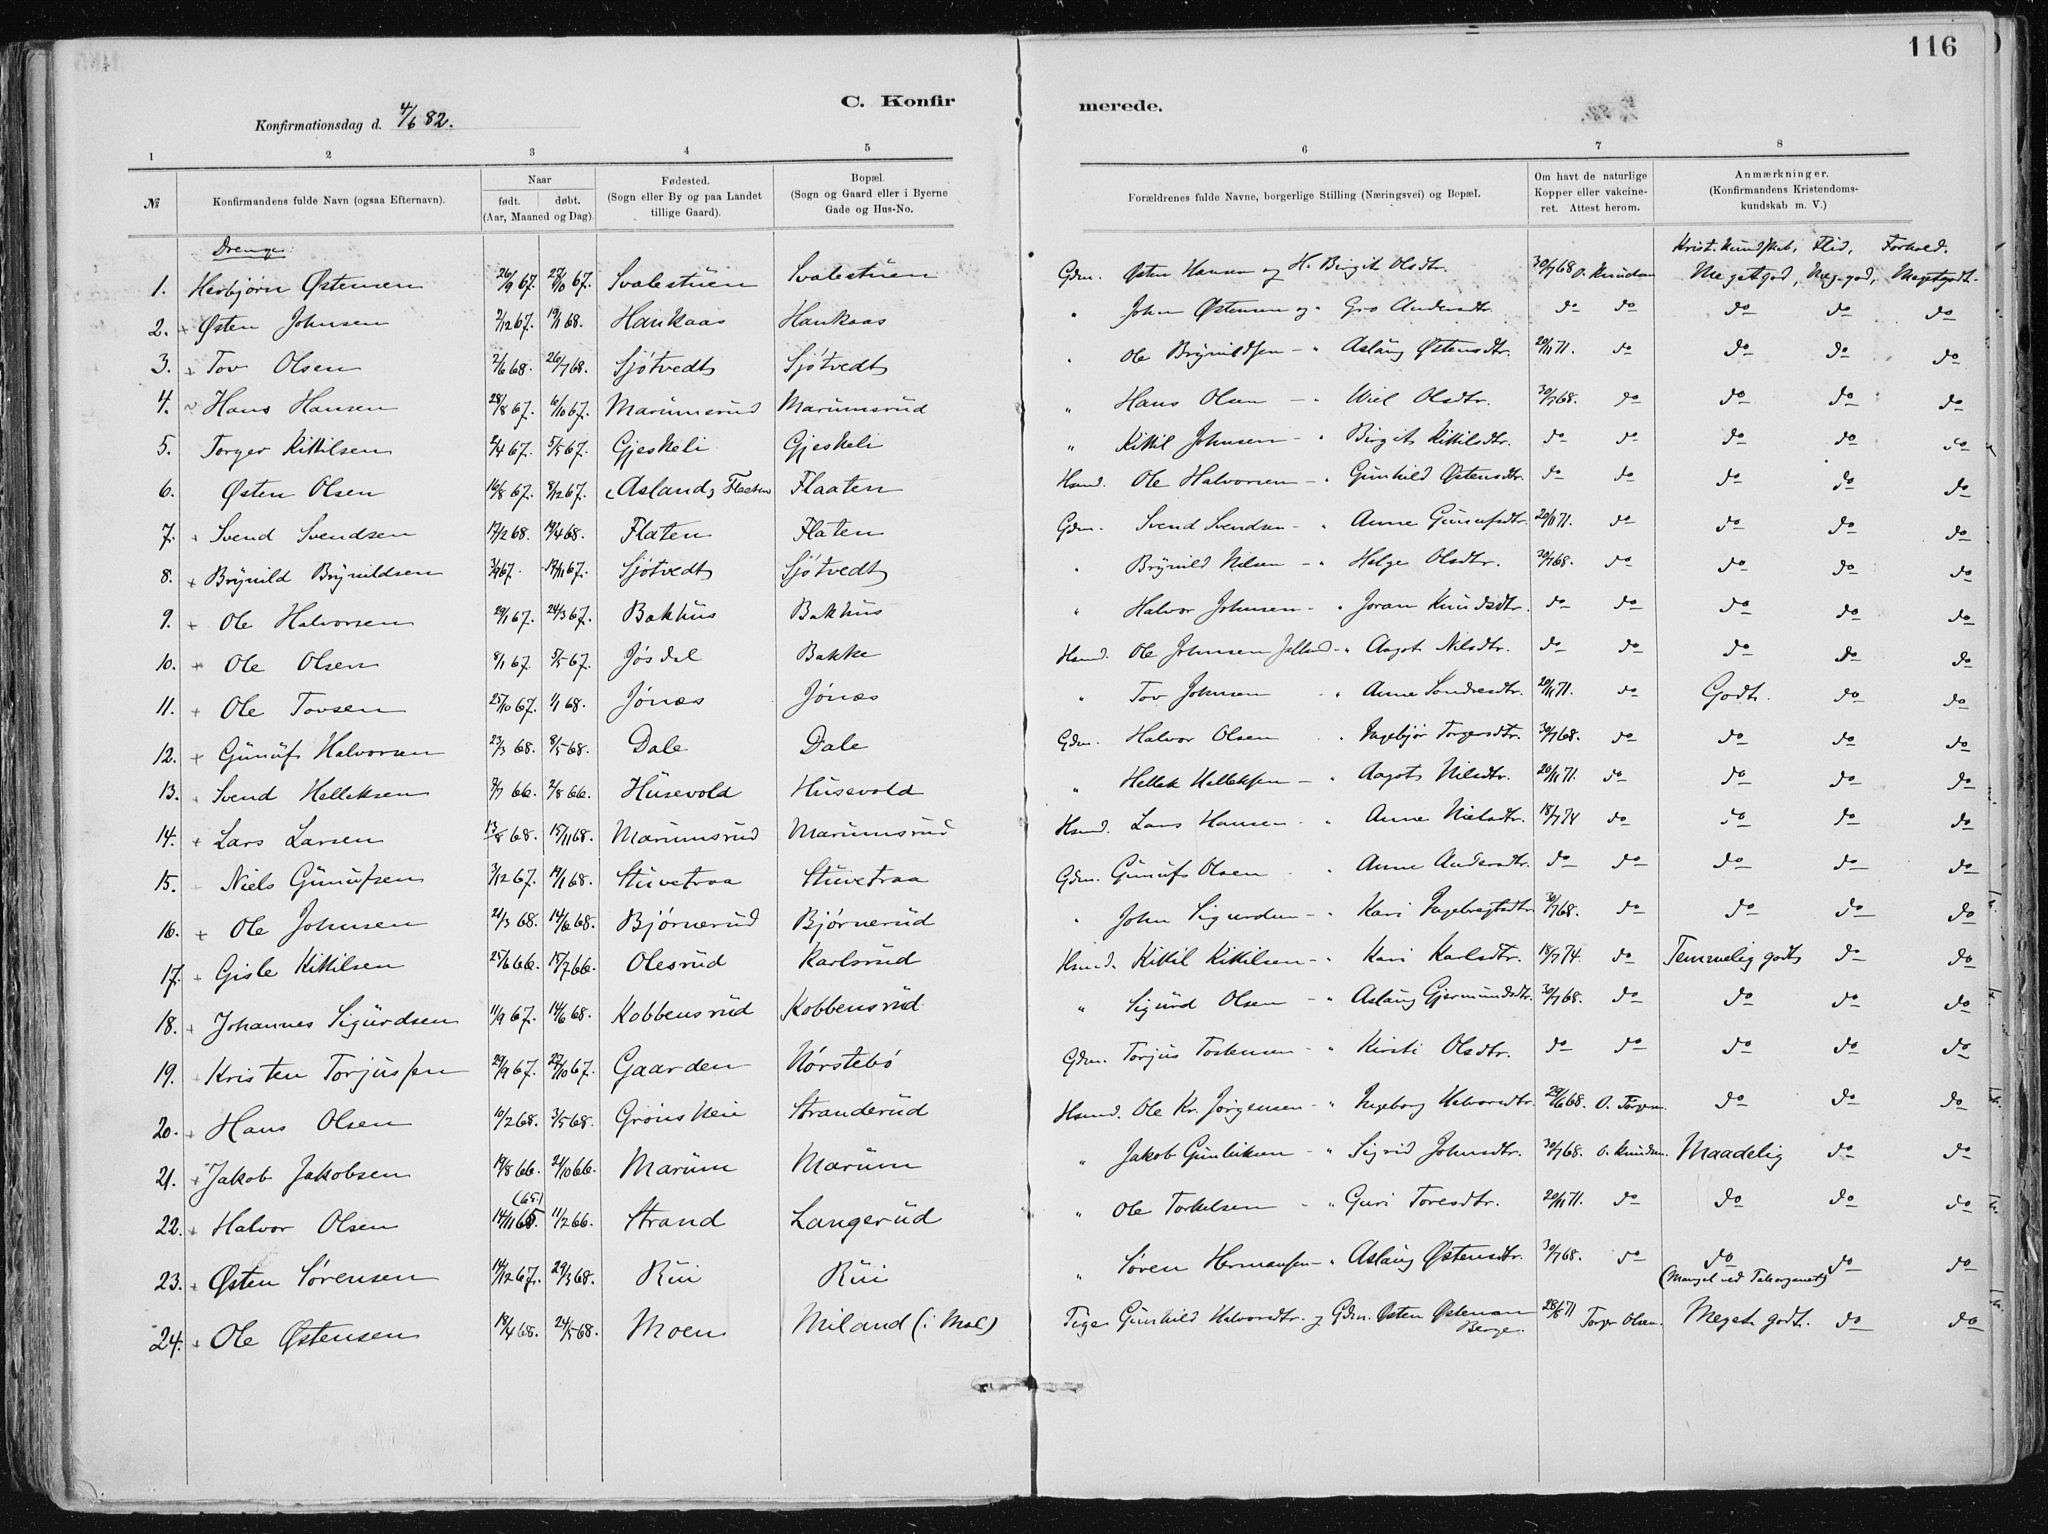 116
C. Konfirmerede.
Konfirmationsdag d. 4/6 82.
1 2 3 4 5 6 7 8
№ Konfirmandens fulde Navn (ogsaa Efternavn). Naar født. døbt. (Aar, Maaned og Dag). Fødested. (Sogn eller By og paa Landet tillige Gaard). Bopæl. (Sogn og Gaard eller i Byerne Gade og Hus-No. Forældrenes fulde Navne, borgerlige Stilling (Næringsvei) og Bopæl. Om havt de naturlige Kopper eller vakcineret. Attest herom. Anmærkninger. (Konfirmandens Kristendomskundskab m. V.)
Drenge. Krist. kundskab, Flid, Forhold.
1. Herbjørn Østensen 26/9 67. 27/10 67. Svalestuen Svalestuen Gdm. Østen Hansen og H. Birgit Olsdtr. 30/7 68 O. Knudsen Meget god, Meg. god, Meget godt.
2. + Østen Johnsen 2/12 67. 19/1 68. Haukaas Haukaas " John Østensen og " Gro Andersdtr. do do do do do
3. + Tov Olsen 2/6 68. 26/7 68. Sjøtvedt Sjøtvedt " Ole Brynildsen - " Aslaug Østensdtr. 20/11 71. do do do do
4. ~ Hans Hansen 28/8 67. 6/10 67. Marumsrud Marumsrud " Hans Olsen - " Olsdtr. 30/7 68. do do do do
5. Torger Kittilsen 2/4 67. 5/5 67. Gjeskeli Gjeskeli " Kittil Johnsen - " Birgit Kittilsdtr. do do do do do
6. Østen Olsen 16/8 67. 8/12 67. (Asland) Flaaten Flaaten Hsmd. Ole Halvorsen - " Gunhild Østensdtr. do do do do do
7. + Svend Svendsen 17/2 68. 19/4 68. Flaten Flaten Gdm. Svend Svendsen - " Anne Gunufsdtr. 20/11 71. do do do do
8. + Brynild Brynildsen 3/9 67. 17/11 67. Sjøtvedt Sjøtvedt " Brynild Nilsen - " Helge Olsdtr. 30/7 68. do do do do
9. + Ole Halvorsen 29/1 67. 24/3 67. Bakhus Bakhus " Halvor Johnsen - " Joran Knudsdtr. do do do do do
10. + Ole Olsen 8/1 67. 5/5 67. Jøsdal Bakke Hsmd. Ole Johnsen - " Aagot Nilsdtr. do do do do do
11. + Ole Tovsen 25/10 67. 1/1 68. Jønæs Jønæs " Tov Johnsen - " Anne Sondresdtr. 20/11 71. do Godt. do do
12. + Gunuf Halvorsen 23/3 68. 8/5 68. Dale Dale Gdm. Halvor Olsen " Ingebjør Torgersdtr. 30/7 68. do do do do
13. + Svend Helleksen 2/7 66. 2/8 66. Husevold Husevold " Hellek Helleksen - " Aagot Nilsdtr. 20/11 71. do do do do
14. + Lars Larsen 13/8 68. 15/11 68. Marumsrud Marumsrud Hsmd. Lars Hansen - " Anne Nielsdtr. 18/7 74 do do do do
15. Niels Gunufsen 3/12 67. 19/1 68. Stuvetraa Stuvetraa Gdm. Gunuf Olsen " Anne Andersdtr. do do do do do
16. + Ole Johnsen 21/3 68. 14/6 68. Bjørnerud Bjørnerud " John Sigurdsen - " Kari Ingebregtsdtr. 30/7 68. do do do do
17. + Gisle Kittilsen 25/6 66. 15/7 66. Olesrud Karlsrud Hsmd. Kittil Kittilsen - " Kari Karlsdtr. 18/7 74. do Temmelig godt do do
18. + Johannes Sigurdsen 11/9 67. 14/6 68. Kobbensrud Kobbensrud " Sigurd Olsen - " Aslaug Gjermundsdtr. 30/7 68. do do do do
19. + Kristen Torjussen 29/9 67. 27/10 67. Gaarden Nørstebø Gdm. Torjus Tostensen - " Kirsti Olsdtr. do do do do do
20. + Hans Olsen 10/2 68. 3/5 68. Grønskei Stranderud Hsmd. Ole Kr. Jørgensen - " Ingeborg Halvorsdtr. 29/6 68. O. Torgersen do do do
21. + Jakob Jakobsen 19/8 66. 21/10 66. Marum Marum " Jakob Gunleiksen - " Sigrid Johnsdtr. 30/7 68. O. Knudsen Maadelig do do
22. + Halvor Olsen 14/11 65. (65) 11/2 66. Strand Langerud " Ole Torkelsen - " Guri Toresdtr. 20/11 71. do do do do
23. + Østen Sørensen 14/12 67. 29/3 68. Rui Rui " Søren Hermansen - " Aslaug Østensdtr. 30/7 68. do do (Mangel ved Taleorganet) do do
24. + Ole Østensen 18/4 68. 24/5 68. Moen Miland (i Mæl) Pige Gunhild Halvorsdtr. og Gdm. Østen Østensen Berge. 28/6 71 Torger Olsen. Meget godt. do do